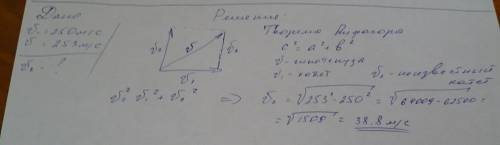 Дано
Решение:
v₁ = 250 м/с
v = 253 м/с
v₀ - ?
v₀ v v₀
v₁
Теорема Пифагора
c² = a² + b²
v - гипотенуза
v₁ - катет v₀ - неизвестный
катет
v² v₁² + v₀² => v₀ = √253² - 250² = √64009 - 62500 =
= √1509 = 38.8 м/с